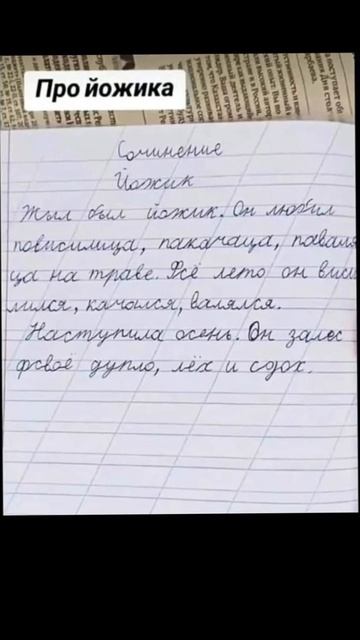 Про йожика
Сочинение
Йожик
Жыл был йожик. Он любил
повисилица, пакачаца, паваля
ца на траве. Фсё лето он висе
лился, качался, валялся.
Наступила осень. Он залес
фсвоё дупло, лёх и сдох.